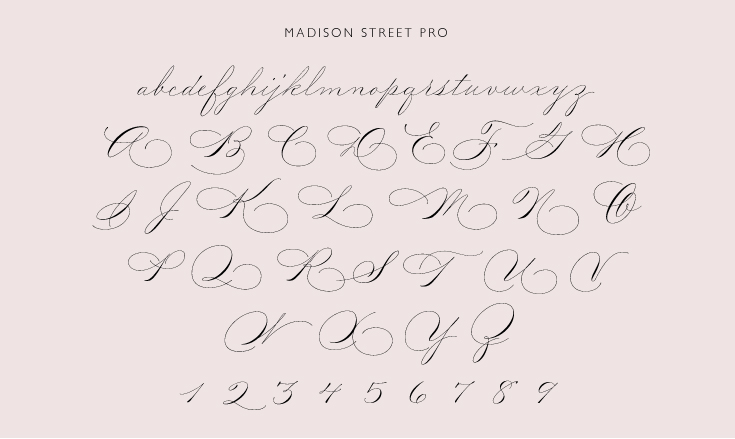 MADISON STREET PRO
abcdefghijklmnopqrstuvwxyz
A B C D E F G H
I J K L M N O
P Q R S T U V
W X Y Z
1 2 3 4 5 6 7 8 9